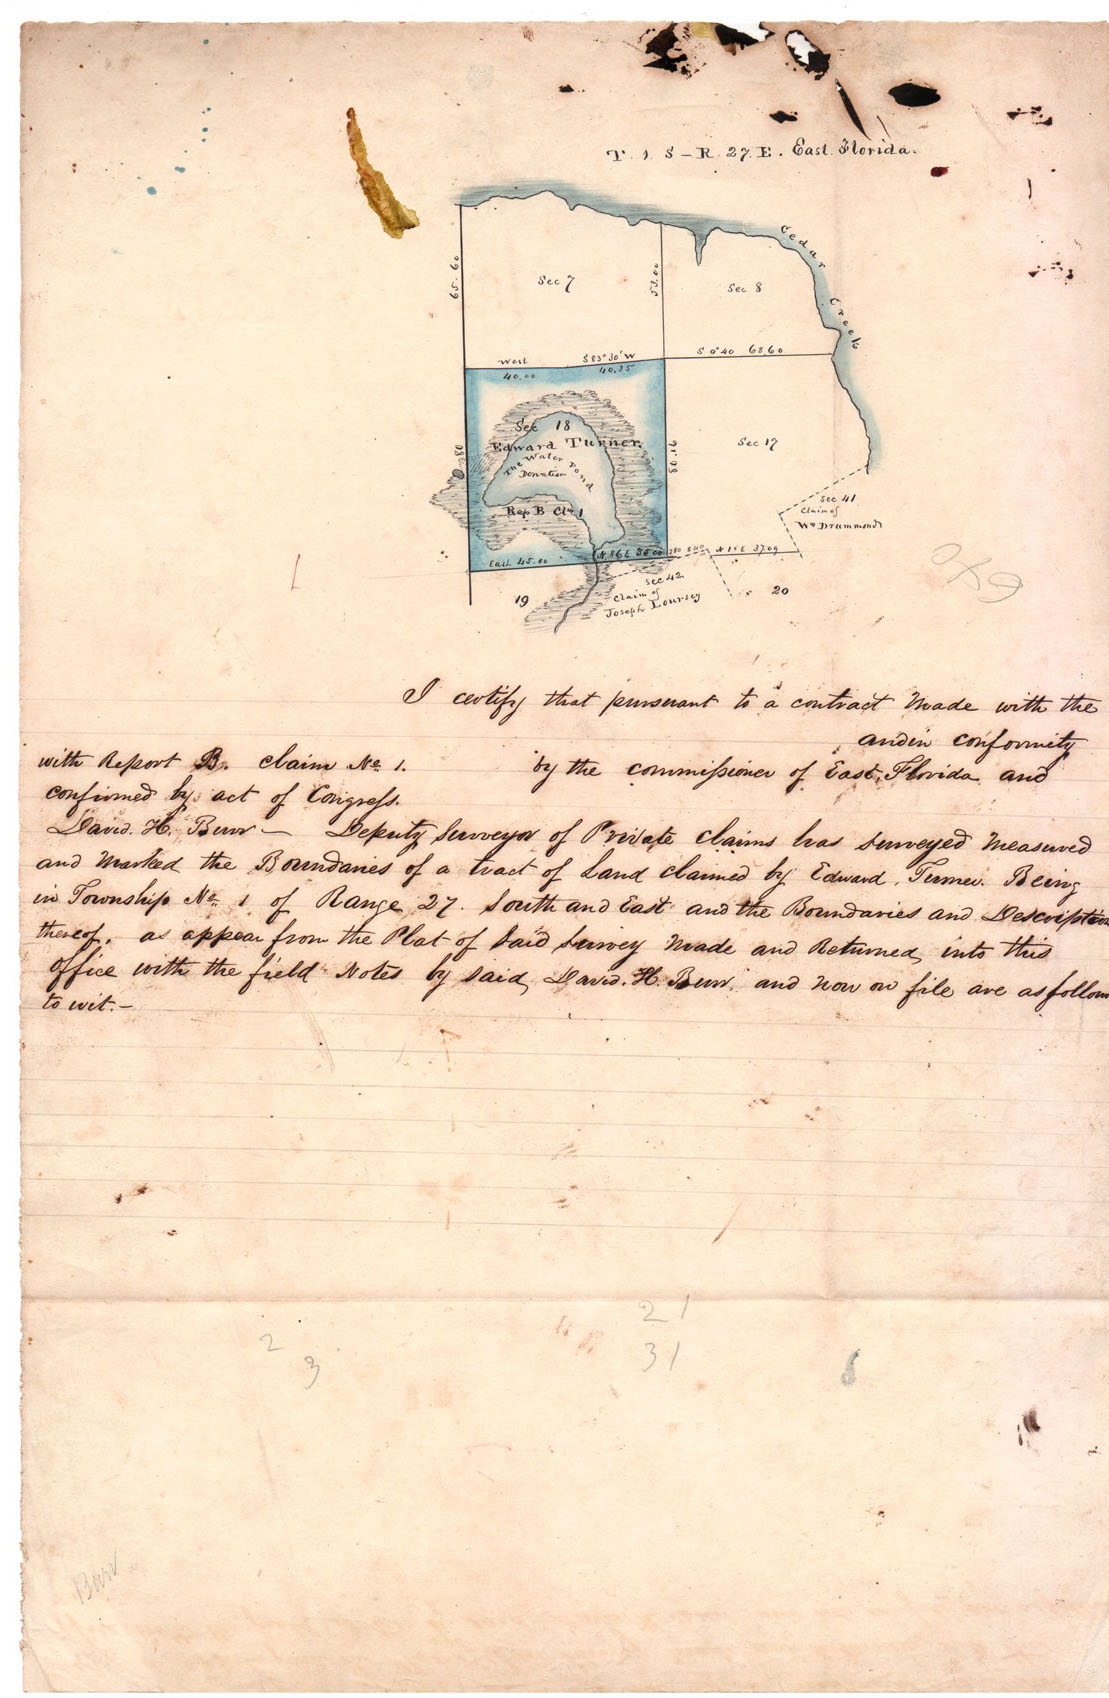 T. 1. S – R. 27. E. East Florida.
Cedar Creek
65.60
Sec 7
53.00
Sec 8
West
S 83° 30' W
S 0° 40 68.60
40.00
40.35
Sec 18
Edward Turner.
The Water Pond
Donation
Rep B Clm 1
Sec 17
Sec 41
Claim of
Wm Drummond
East 45.00
N 86 E 50.00
N 1° E 37.09
19
Sec 42
Claim of
Joseph Loursey
20
I certify that pursuant to a contract Made with the
and in conformity
with Report B. claim No 1. by the commissioner of East, Florida and
confirmed by act of Congress.
David. H. Burr — Deputy Surveyor of Private claims has surveyed Measured
and Marked the Boundaries of a tract of Land claimed by Edward. Turner. Being
in Township No 1 of Range 27. South and East and the Boundaries and Description
thereof. as appear from the Plat of Said Survey Made and Returned, into this
office with the field Notes by said, David. H. Burr. and now on file are as follow
to wit. –
21
2
31
3
Burr